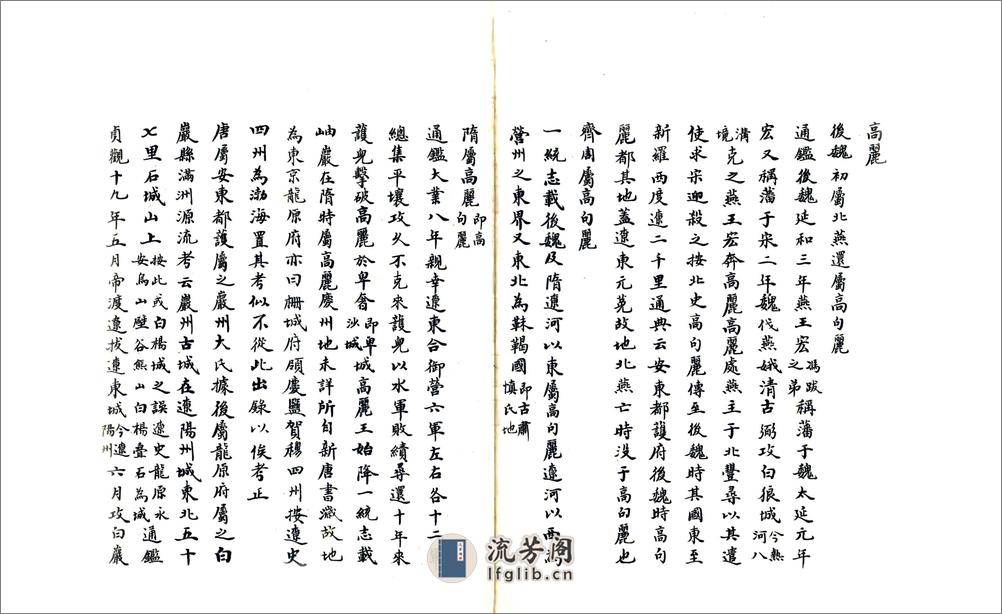 高麗
後魏初屬北燕還屬高句麗
通鑑後魏延和三年燕王宏馮跋之弟稱藩于魏太延元年
宏又稱藩于宋二年魏伐燕娥清古弼攻白狼城今熱河八
溝境克之燕王宏奔高麗高麗處燕主于北豐尋以其遣
使求宋迎殺之按北史高句麗傳至後魏時其國東至
新羅西度遼二千里通典云安東都護府後魏時高句
麗都其地蓋遼東元菟故地北燕亡時没于高句麗也
齊周屬高句麗
一統志載後魏及隋遼河以東屬高句麗遼河以西為
營州之東界又東北為靺鞨國即古肅慎氏地
隋屬高麗即高句麗
通鑑大業八年親幸遼東合御營六軍左右各十二
總集平壤攻久不克來護兒以水軍敗績尋還十年來
護兒擊破高麗於卑奢即卑沙城城高麗王始降一統志載
岫巖在隋時屬高麗慶州地未詳所自新唐書濊故地
為東京龍原府亦曰柵城府領慶鹽賀穆四州按遼史
四州為渤海置其考似不從此出錄以俟考正
唐屬安東都護屬之巖州大氏據後屬龍原府屬之白
巖縣滿洲源流考云巖州古城在遼陽州城東北五十
七里石城山上按此或白楊城之誤遼史龍原永安烏山壁谷熊山白楊疊石為城通鑑
貞觀十九年五月帝渡遼拔遼東城今遼陽州六月攻白巖
流芳閣
lfglib.cn